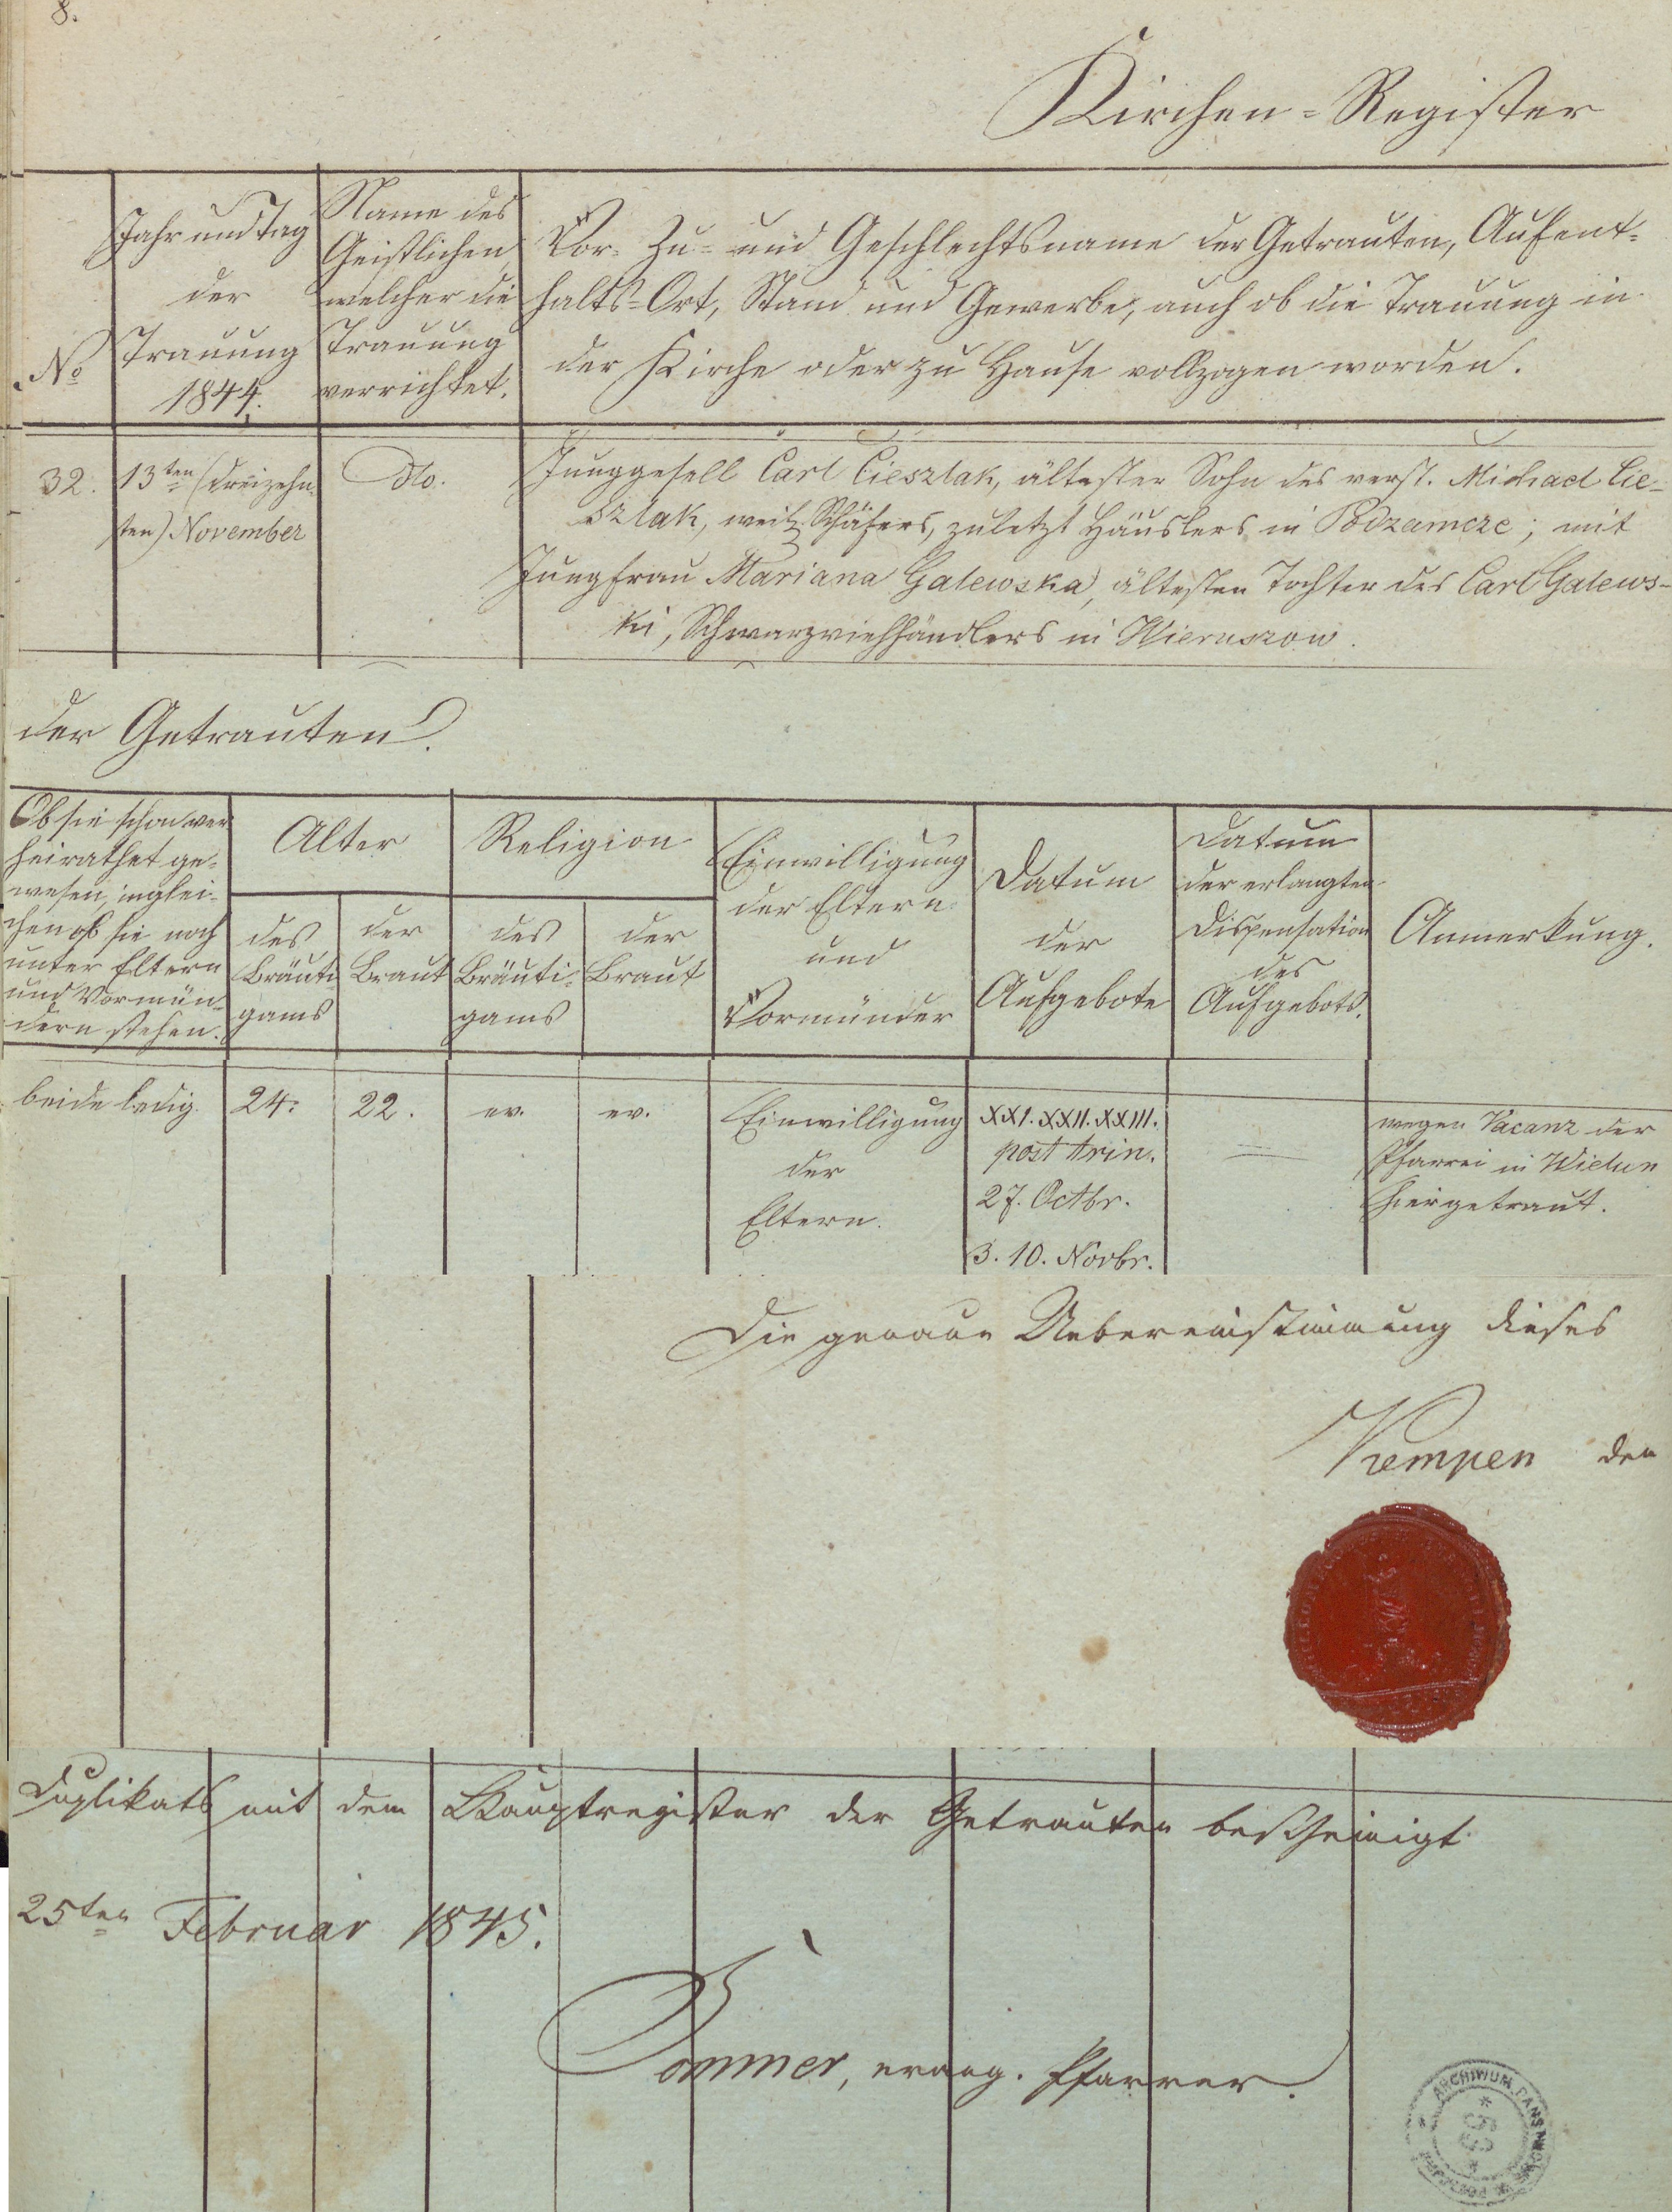 8.
Kirchen-Register
Jahr und Tag
der
Trauung
1844.
Name des
Geistlichen,
welcher die
Trauung
verrichtet.
Vor- Zu- und Geschlechtsname der Getrauten, Aufent-
halts-Ort, Stand und Gewerbe, auch ob die Trauung in
der Kirche oder zu Hause vollzogen worden.
No
32.
13ten (dreizehn-
ten) November
do.
Junggesell Carl Cieszlak, ältester Sohn des verst. Michael Cie-
szlak, weil. Schäfers, zuletzt Häuslers in Podzamcze; mit
Jungfrau Mariana Galewska, ältesten Tochter des Carl Galews-
ki, Schwarzviehhändlers in Wieruszow.
der Getrauten.
Ob sie schon ver
heirathet ge-
wesen, inglei-
chen ob sie noch
unter Eltern
und Vormün-
dern stehen.
Alter
des
Bräuti
gams
der
Braut
Religion
des
Bräuti-
gams
der
Braut
Einwilligung
der Eltern
und
Vormünder
Datum
der
Aufgebote
Datum
der erlangten
Dispensation
des
Aufgebots.
Anmerkung.
beide ledig.
24.
22.
ev.
ev.
Einwilligung
der
Eltern.
XXI. XXII. XXIII.
post trin.
27. Octbr.
3. 10. Novbr.
wegen Vacanz der
Pfarrei in Wielun
hier getraut.
Die genaue Uebereinstimmung dieses
Kempen den
Duplikats mit dem Hauptregister der Getrauten bescheinigt
25ten Februar 1845.
Pommer, evang. Pfarrer.
ARCHIWUM PAŃSTWOWE
* 63 *